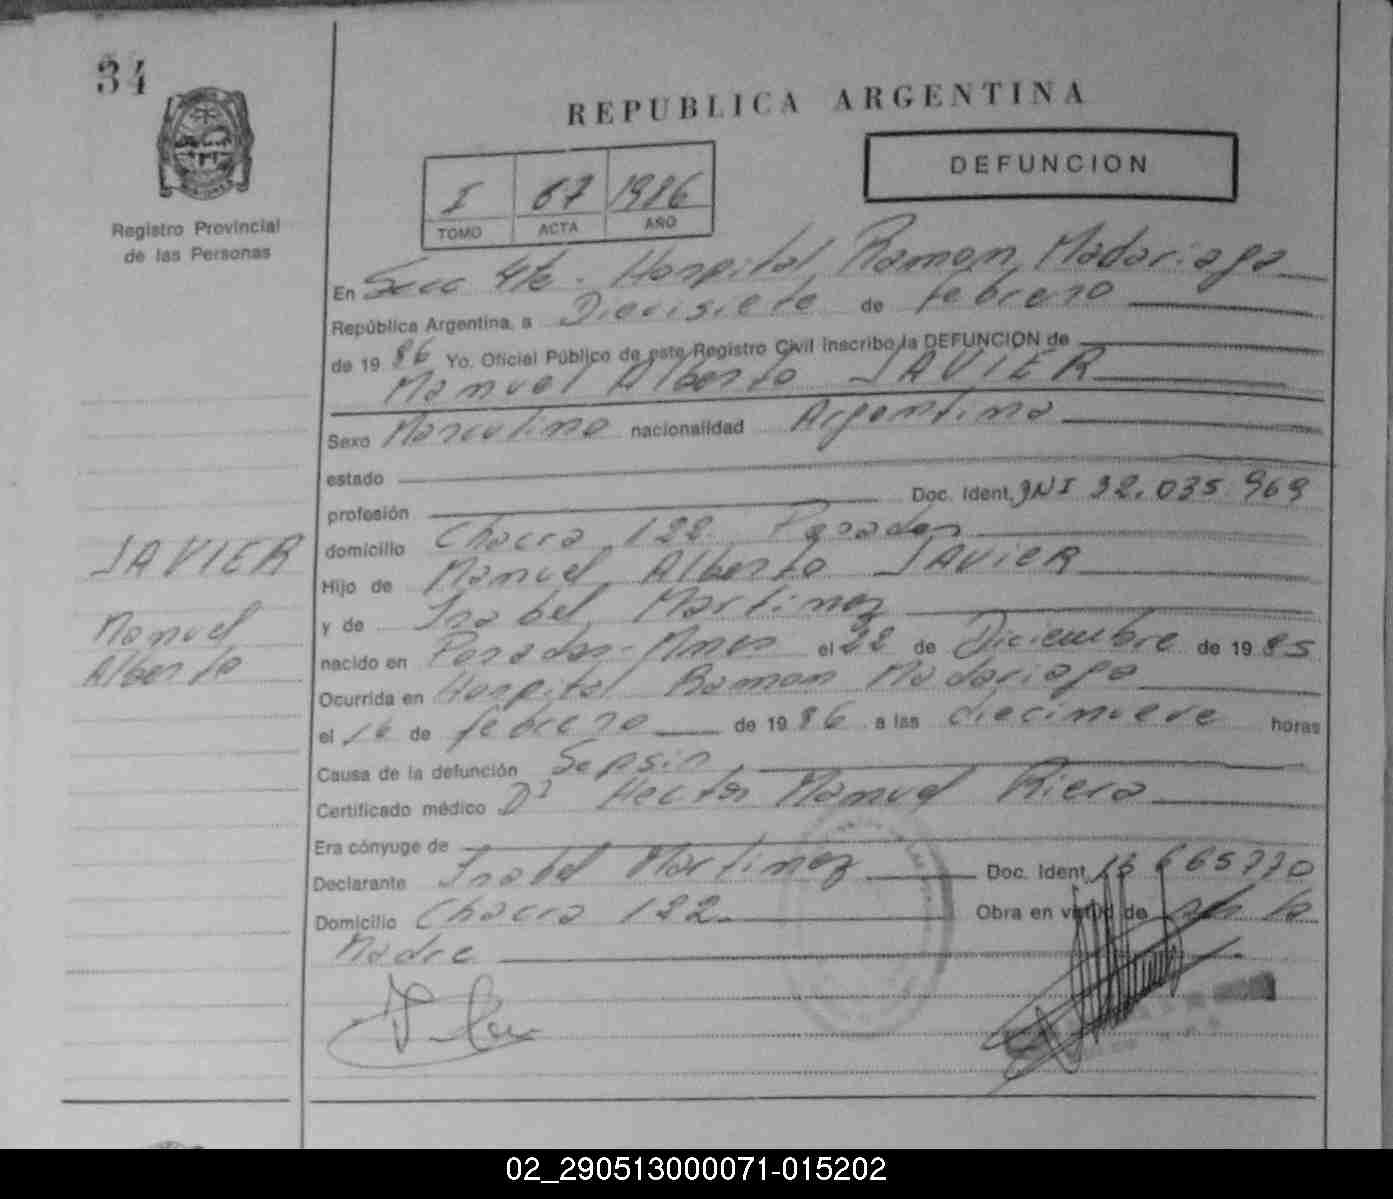 34
REPUBLICA ARGENTINA
DEFUNCION
I 67 1986
TOMO ACTA AÑO
Registro Provincial
de las Personas
En Secc 4ta. Hospital Ramon Madariaga
República Argentina, a Diecisiete de febrero
de 19 86 Yo, Oficial Público de este Registro Civil inscribo la DEFUNCION de
Manuel Alberto JAVIER
Sexo Masculino nacionalidad Argentina
estado
profesión Doc. Ident. DNI 32.035.969
domicilio Chacra 122 Posadas
JAVIER
Hijo de Manuel Alberto JAVIER
y de Isabel Martinez
Manuel
Alberto
nacido en Posadas-Mnes el 22 de Diciembre de 19 85
Ocurrida en Hospital Ramon Madariaga
el 16 de febrero de 19 86 a las diecinueve horas
Causa de la defunción Sepsis
Certificado médico Dr Hector Manuel Riera
Era cónyuge de
Declarante Isabel Martinez Doc. Ident. 665770
Domicilio Chacra 122 Obra en virtud de la
Madre
02_290513000071-015202